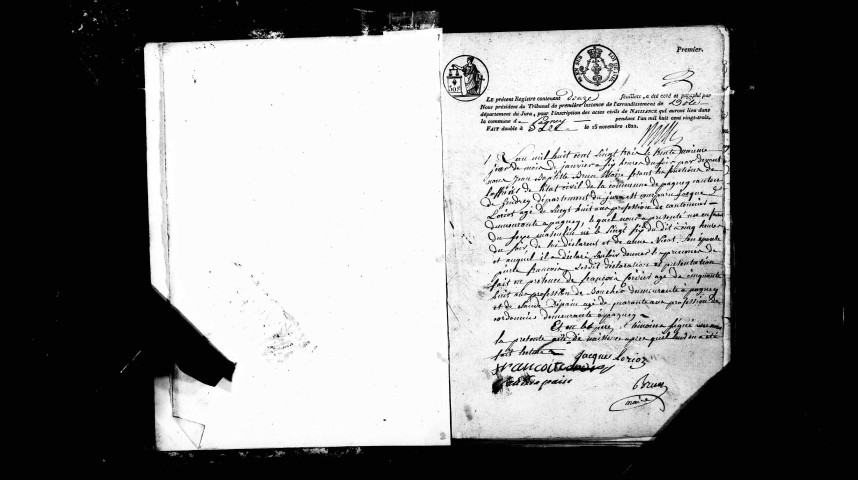 Premier.
LE présent Registre contenant douze feuillets a été coté et paraphé par
Nous président du Tribunal de première instance de l'arrondissement de Dole
département du Jura, pour l'inscription des actes civils de NAISSANCE qui auront lieu dans
la commune de Pagney pendant l'an mil huit cent vingt-trois.
FAIT double à Dole le 15 novembre 1822.
L'an mil huit cent vingt trois le trente unieme
jour du mois de janvier a six heures du soir par devant
nous Jean Baptiste Brun Maire fesant les fonctions de
l'officier de l'état civil de la commune de pagney canton
de Gendrey département du jura est comparu jacque
Loriot age de vingt huit ans profession de cantonnier
demeurante a pagney, le quel nous a presenté un enfant
du sexe masculin né le vingt six du dit a cinq heures
du soir, de lui declarant et de Son épouse
et auquel il a déclaré vouloir donner les prenoms de
pierre françois Lesdit declaration et presentation
fait en presence de françois age de cinquante
huit ans profession de demeurante a pagney
et de Claude age de quarante ans profession de
cordonnier demeurante a pagney
Et ont les pere et temoins signé avec nous
la presente acte de naissance apres quel lecture a été
fait
jacque Loriot
francois
Brun
maire